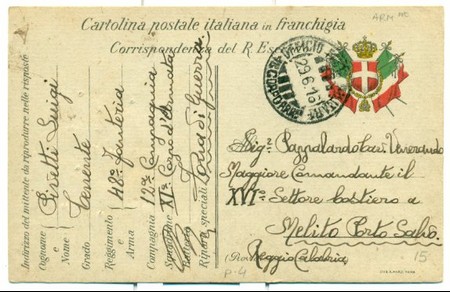 Cartolina postale italiana in franchigia
Corrispondenza del R. Esercito
Indirizzo del mittente da riprodurre nelle risposte
Cognome e Nome
Pisetti Luigi
Grado
Tenente
Reggimento e Arma
48º Fanteria
Compagnia
12ª Compagnia
XIº Corpo d'Armata
Riparti speciali
Zona di Guerra
29.6.16
Sig.
Venerando
Maggiore Comandante il
XVIº Settore costiero a
Melito Porto Salvo.
(Prov.
Reggio Calabria)
P.4
15